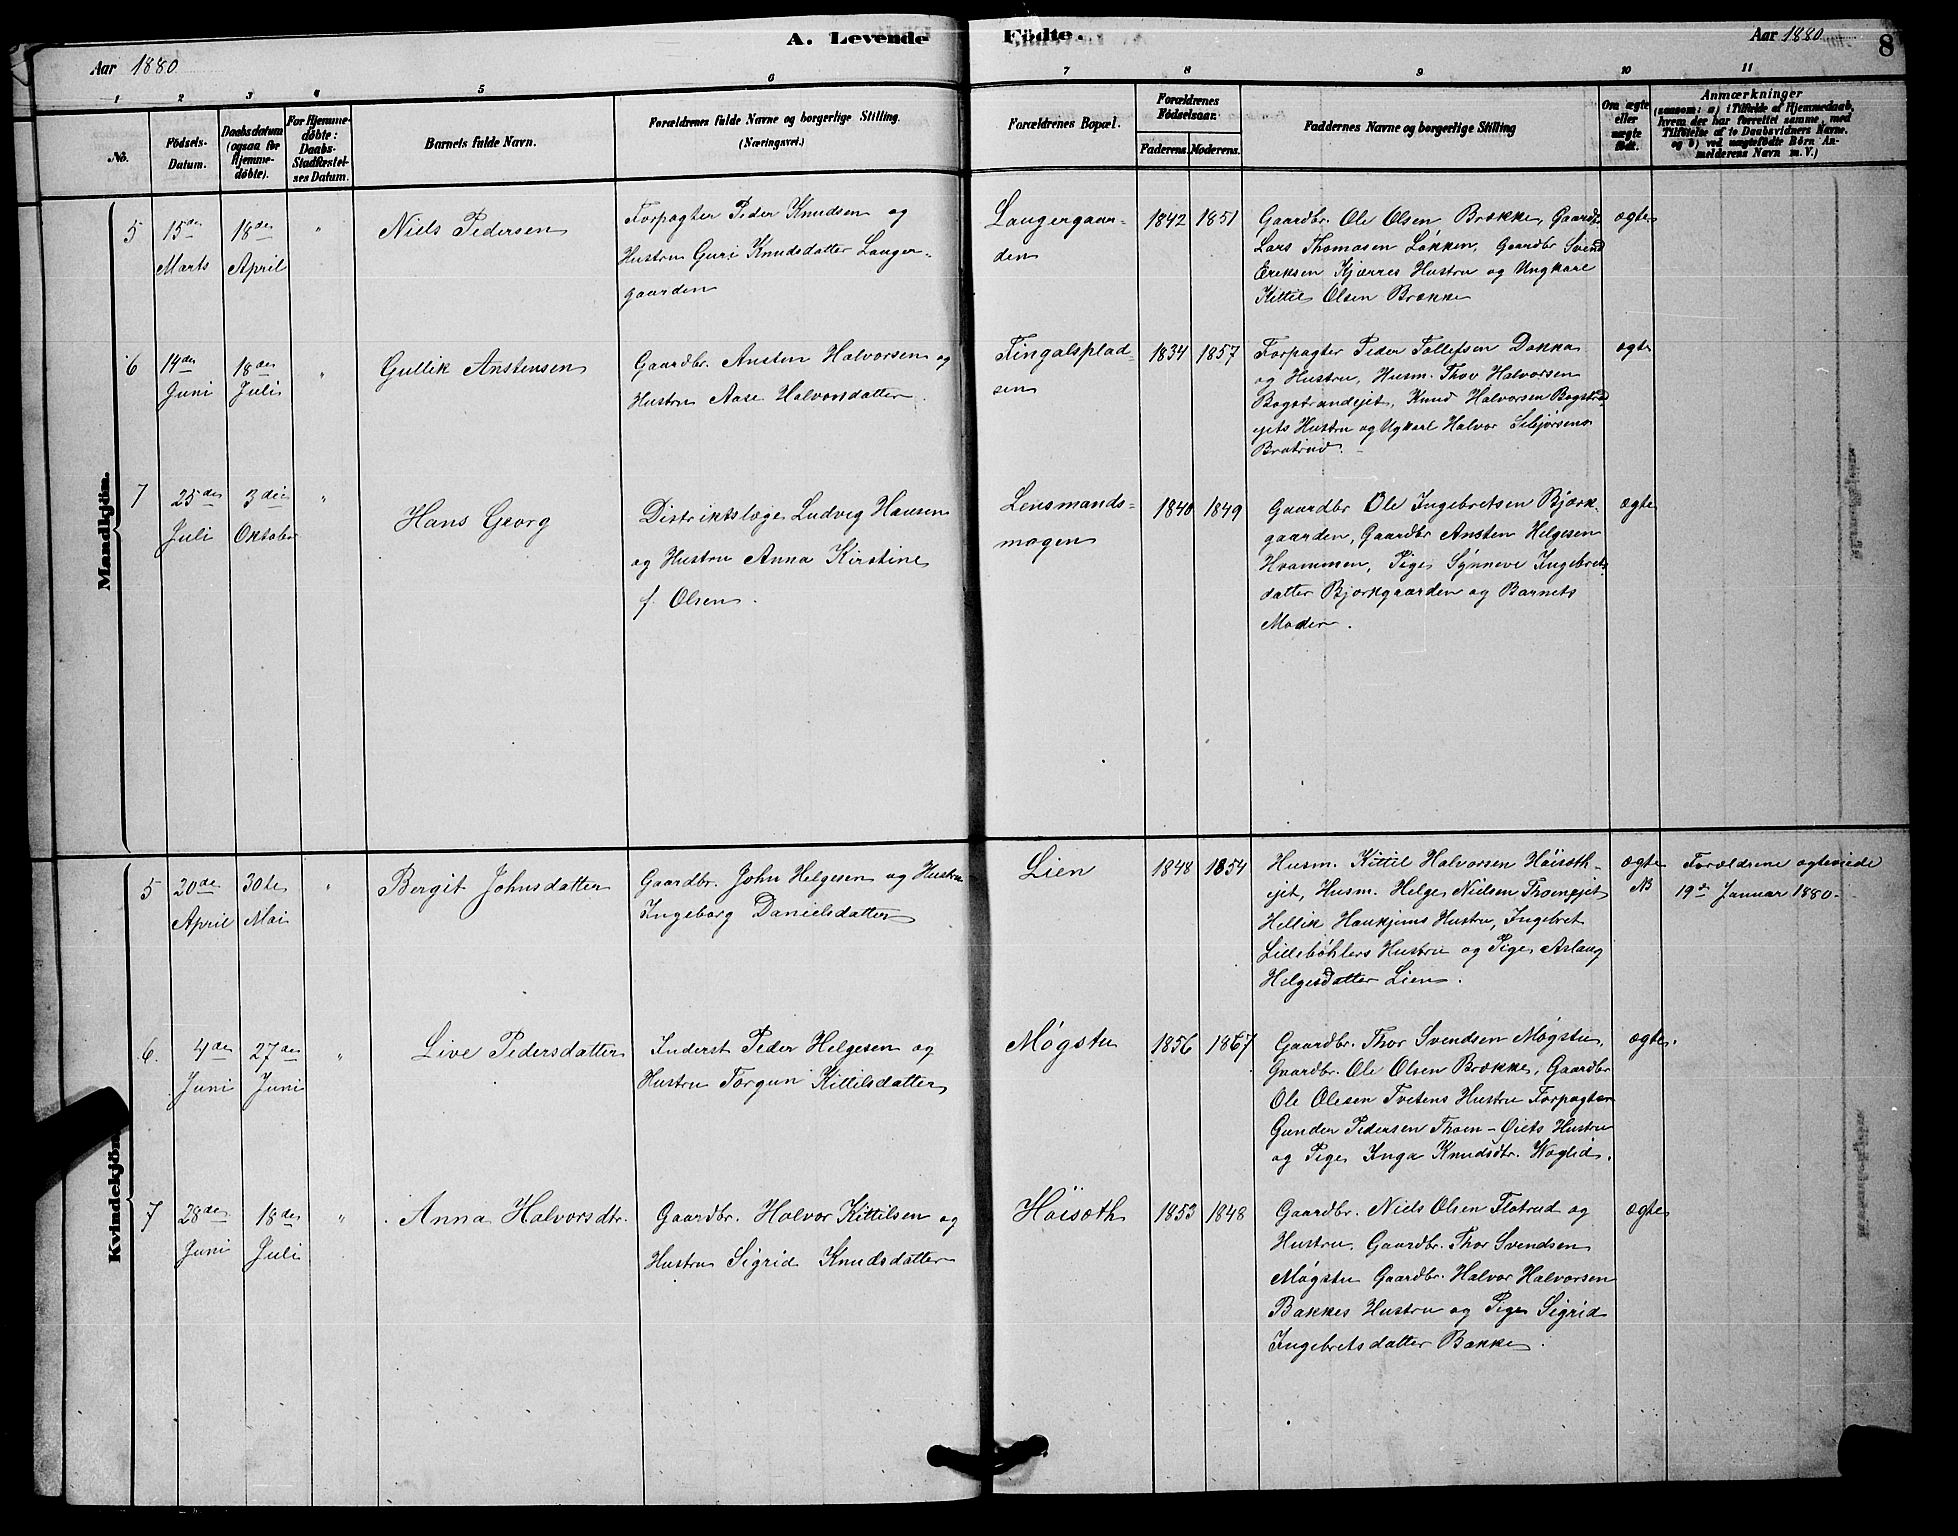 A. Levende Födte.
Aar 1880
Aar 1880
8
1 2 3 4 5 6 7 8 9 10 11
No.
Födsels-
Datum.
Daabsdatum
(ogsaa for
Hjemme-
døbte).
For Hjemme-
døbte:
Daabs-
Stadfæstel-
ses Datum.
Barnets fulde Navn.
Forældrenes fulde Navne og borgerlige Stilling.
(Næringsvei.)
Forældrenes Bopæl.
Forældrenes
Fødselsaar.
Faderens. Moderens.
Faddernes Navne og borgerlige Stilling
Om ægte
eller
uægte
født.
Anmærkninger
(saasom: a) i Tilfælde af Hjemmedaab,
hvem der har forrettet samme, med
Tilføielse af to Daabsvidners Navne.
og b) ved uægtefødte Børn An-
melderens Navn m. V.)
Mandkjön.
5
15de
Marts
18de
April
"
Niels Pedersen
Forpagter Peder Knudsen og
Hustru Guri Knudsdatter Langer-
gaarden
Langergaar-
den
1842 1851
Gaardbr. Ole Olsen Brække, Gaardb.
Lars Thomasen Løkken, Gaardbr Svend
Eriksen Kjærres Hustru og Ungkarl
Kittil Olsen Brække
ægte
6
14de
Juni
18de
Juli
"
Gullik Anstensen
Gaardbr. Ansten Halvorsen og
Hustru Aase Halvorsdatter.
Fingalsplad-
sen
1834 1857
Forpagter Peder Tollefsen Dokka
og Hustru, Husm. Thov Halvorsen
Bogstrandejet, Knud Halvorsen Bogstrd
ejets Hustru og Ugkarl Halvor
Bratrud.
ægte
7
25de
Juli
3die
Oktober
"
Hans Georg
Distriktslæge Ludvig Hansen
og Hustru Anna Kirstine
f. Olsen.
Lensmands-
mogen
1840 1849
Gaardbr Ole Ingebretsen Bjørk-
gaarden, Gaardbr Ansten Helgesen
Hvammen, Pige Synneve Ingebrets
datter Bjørkgaarden og Barnets
Moder.
ægte
Kvindekjön.
5
20de
April
30te
Mai
"
Bergit Johnsdatter
Gaardbr. John Helgesen og Hustru
Ingeborg Danielsdatter
Lien
1848 1854
Husm. Kittil Halvorsen Höisøth-
ejet, Husm. Helge Nielsen Thoenejet
Hellik Haukjems Hustru, Ingebret
Lillebøhlers Hustru og Pige Aslaug
Helgesdatter Lien.
ægte
NB
Forældrene ægteviede
19de Januar 1880.
6.
4de
Juni
27de
Juni
"
Live Pedersdatter
Inderst Peder Helgesen og
Hustru Torgun Kittilsdatter
Møgstu
1856 1867
Gaardbr. Thor Svendsen Møgstu,
Gaardbr. Ole Olsen Brække, Gaardbr
Ole Olesen Tvetens Hustru Forpagter
Gunder Pedersen Thoen-Eiets Hustru
og Pige Inga Knudsdtr. Woglid.
ægte.
7
28de
Juni
18de
Juli
"
Anna Halvorsdtr.
Gaardbr. Halvor Kittilsen og
Hustru Sigrid Knudsdatter
Höisøth
1853 1848
Gaardbr. Niels Olsen Flotrud og
Hustru. Gaardbr. Thor Svendsen
Møgstu Gaardbr. Halvor Halvorsen
Bakkes Hustru og Pige Sigrid
Ingebretsdatter Bakke.
ægte